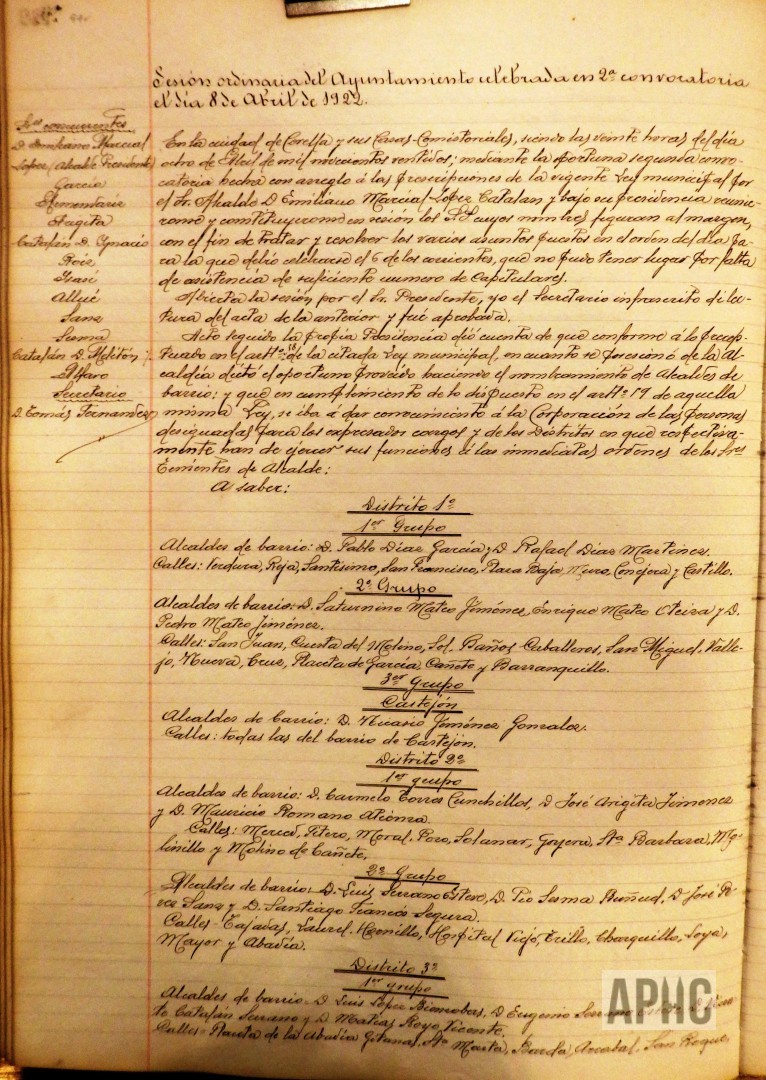 Sesión ordinaria del Ayuntamiento celebrada en 2ª convocatoria
el día 8 de Abril de 1922.
Sres concurrentes
D. Emiliano Marcial
López (Alcalde Presidente)
García
Armendáriz
Argita
Catalán D. Ignacio
Roiz
Isasi
Allué
Sanz
Sesma
Catalán D. Melitón
Alfaro
Secretario
D. Tomás Fernandez
En la ciudad de Corella y sus Casas-Comistoriales, siendo las veinte horas del día
ocho de Abril de mil novecientos veintidos; mediante la oportuna segunda convo-
catoria hecha con arreglo á las prescripciones de la vigente Ley municipal por
el Sr. Alcalde D. Emiliano Marcial López Catalan y bajo su presidencia reunie-
ronse y constituyeronse en sesión los SS cuyos nombres figuran al margen,
con el fin de tratar y resolver los varios asuntos puestos en el orden del día pa-
ra la que debió celebrarse el 6 de los corrientes, que no pudo tener lugar por falta
de asistencia de suficiente numero de Capitulares.
Abierta la sesión, por el Sr. Presidente, yo el Secretario infrascrito di lec-
tura del acta de la anterior y fué aprobada.
Acto seguido la propia Presidencia dió cuenta de que conforme á lo precep-
tuado en el artº de la citada Ley municipal, en cuanto se posesionó de la Al-
caldía dictó el oportuno proveido haciendo el nombramiento de Alcaldes de
barrio; y que en cumplimiento de lo dispuesto en el artº 17 de aquella
misma Ley, se iba á dar conocimiento á la Corporación de las personas
designadas para los expresados cargos y de los Distritos en que respectiva-
mente han de ejercer sus funciones á las inmediatas ordenes de los Sres
Tenientes de Alcalde:
A saber:
Distrito 1º
1er Grupo
Alcaldes de barrio: D. Pablo Diaz García y D. Rafael Diaz Martinez.
Calles: Verdura, Reja, Santísimo, San Francisco, Plaza Baja, Muro, Conejera y Castillo.
2º Grupo
Alcaldes de barrio: D. Saturnino Mateo Jiménez, Enrique Mateo Oteiza y D.
Pedro Mateo Jiménez.
Calles: San Juan, Cuesta del Molino, Sol, Baños-Caballeros, San Miguel, Valle-
jo, Nueva, Cruz, Placeta de García, Cañete y Barranquillo.
3er Grupo
Castejón
Alcaldes de Barrio: D. Nicasio Jiménez Gonzalez.
Calles: todas las del barrio de Castejón.
Distrito 2º
1er grupo
Alcaldes de barrio: D. Carmelo Torres Cunchillos, D José Arigita Jimenez
y D. Mauricio Romano Atienza.
Calles: Merced, Fitero, Moral, Pozo, Solanar, Goyera, Sta Barbara, Mo-
linillo y Molino de Cañete.
2º Grupo
Alcaldes de barrio: D. Luis Serrano Estero, D. Pío Sesma Buñuel, D José Pe-
rez Sanz y D. Santiago Francés Segura.
Calles-Tajadas, Laurel, Hornillo, Hospital Viejo, Trillo, Charquillo, Loya,
Mayor y Abadía.
Distrito 3º
1er grupo
Alcaldes de barrio. D Luis López Bienzobas, D. Eugenio
to Catalán Serrano y D. Matías Royo Vicente.
Calles-Placeta de la Abadía Gitanas, Sta Marta, Barda, Arrabal, San Roque,
APHC